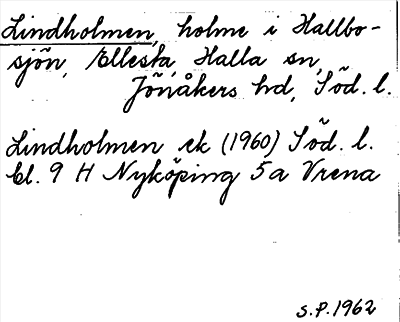 Lindholmen, holme i Hallbo-
sjön, Ellesta, Halla sn,
Jönåkers hd, Söd. l.
Lindholmen ek (1960) Söd. l.
bl. 9 H Nyköping 5a Vrena
S.P. 1962